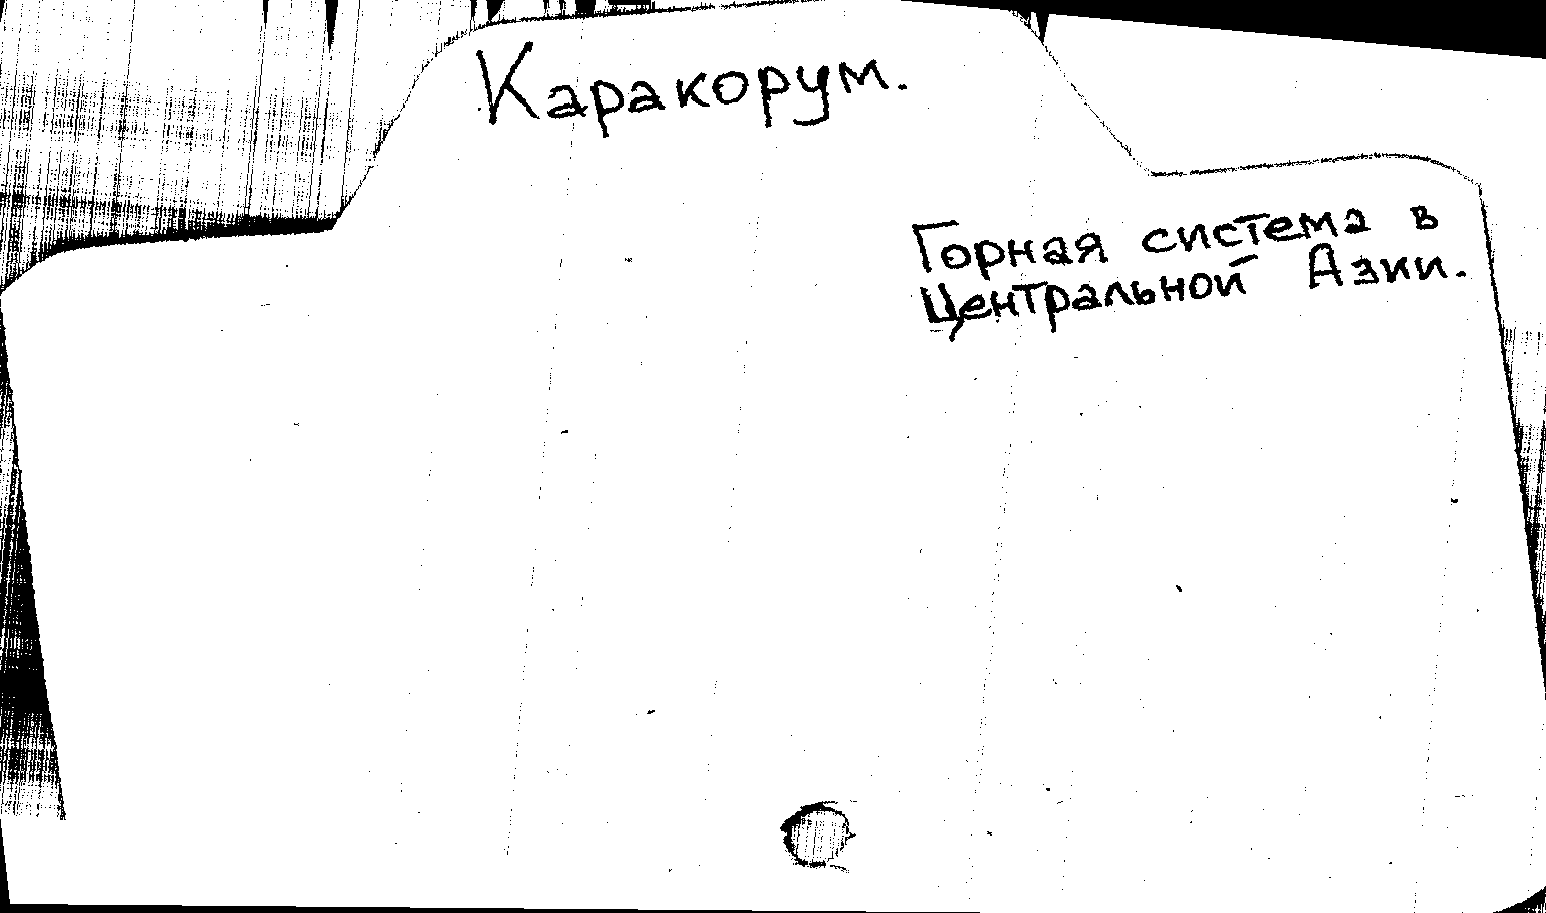 Каракорум.
Горная система в
Центральной Азии.